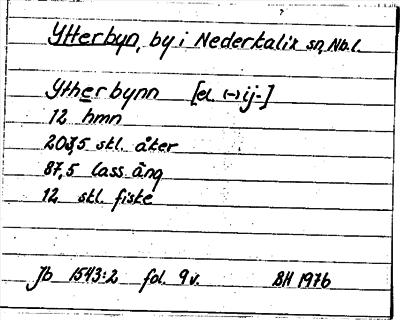 Ytterbyn, by i Nederkalix sn, Nb.l.
Ytherbynn [el. (-)ij-]
12 hmn
203,5 skl. åker
87,5 lass äng
12 skl. fiske
Jb 1543:2 fol. 9v. BH 1976